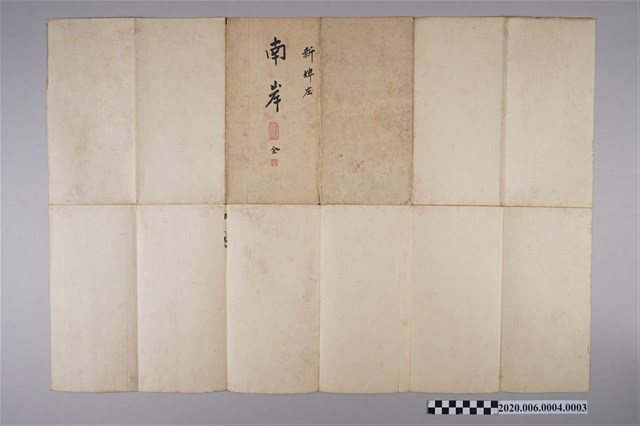 新埤庄
南岸
全
2020.006.0004.0003